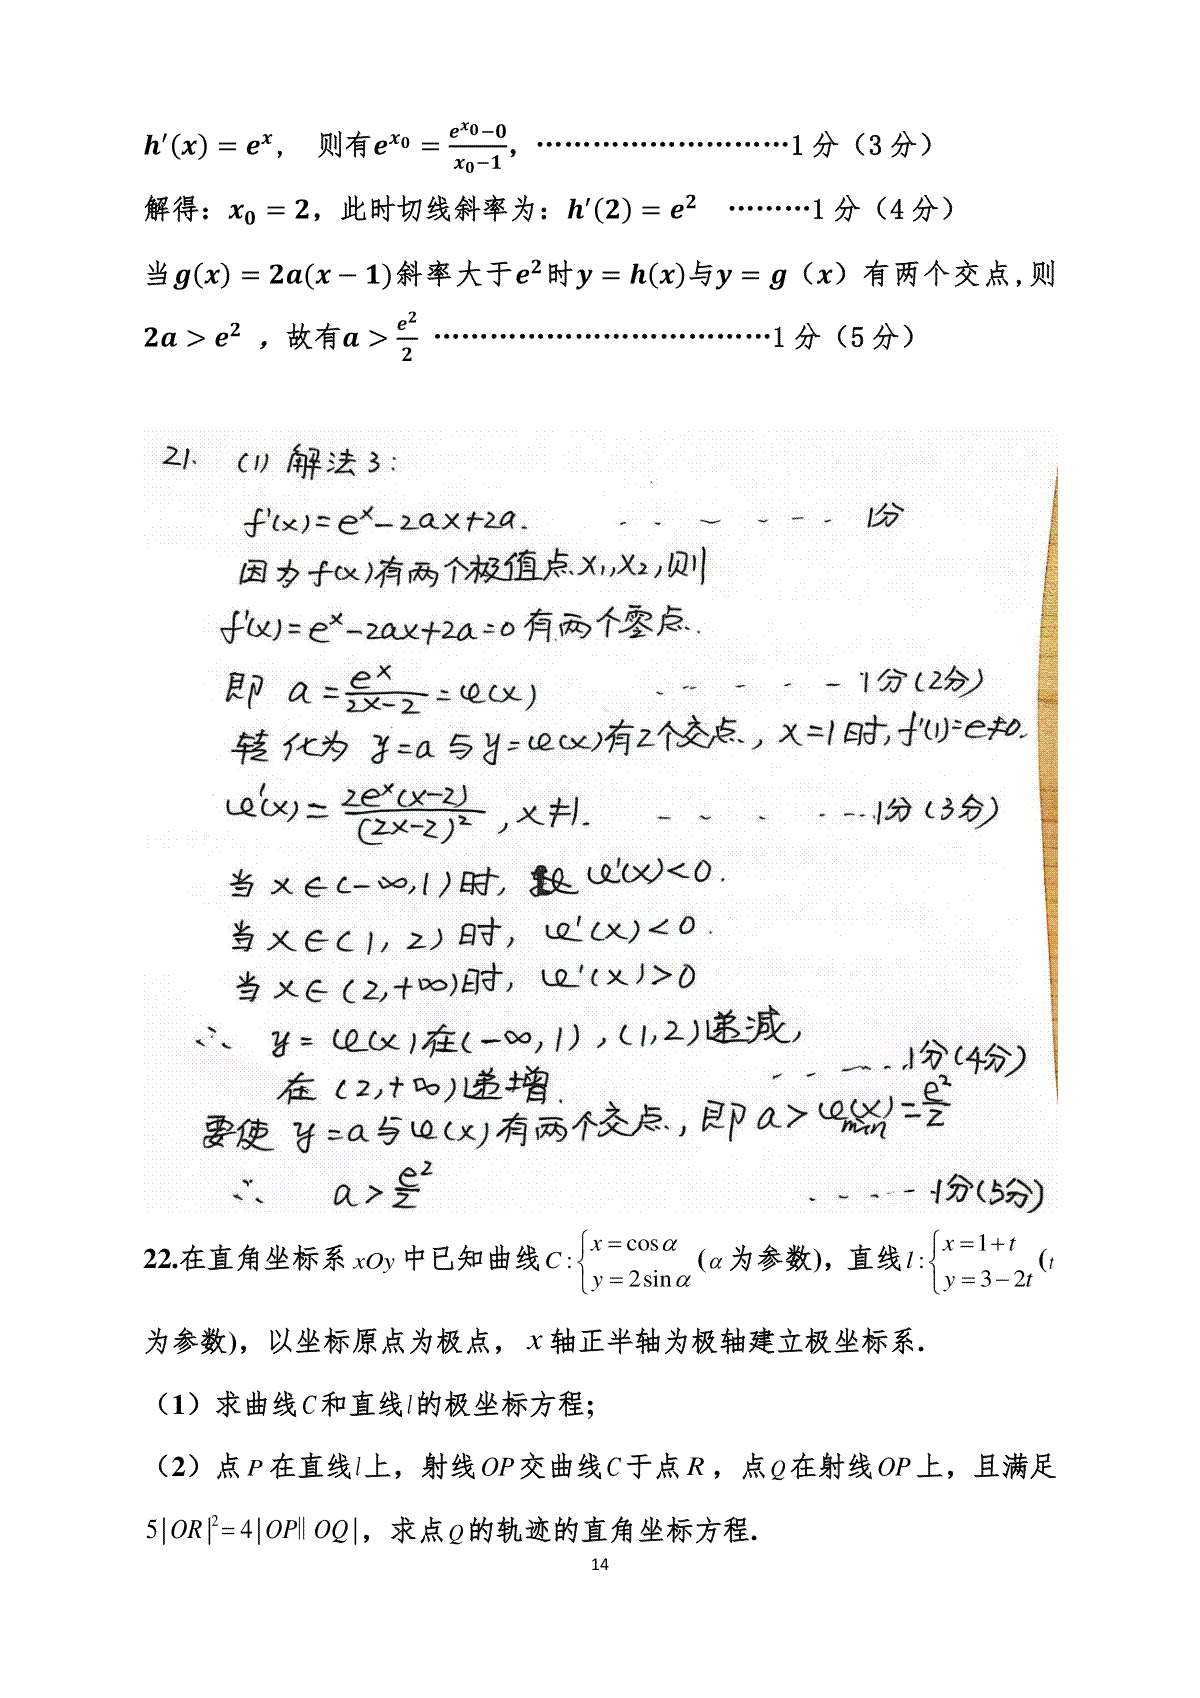 h′(x) = eˣ， 则有e^{x₀} = (e^{x₀}−0)/(x₀−1)，………………………1 分（3 分）
解得：x₀ = 2，此时切线斜率为：h′(2) = e² ………1 分（4 分）
当g(x) = 2a(x − 1)斜率大于e²时y = h(x)与y = g（x）有两个交点,则
2a > e² ，故有a > e²/2 ………………………………1 分（5 分）
21. (1) 解法3：
f'(x)=eˣ-2ax+2a. ------- 1分
因为f(x)有两个极值点x₁,x₂,则
f'(x)=eˣ-2ax+2a=0有两个零点.
即 a=eˣ/(2x-2)=φ(x) ------ 1分(2分)
转化为 y=a与y=φ(x)有2个交点，x=1时,f'(1)=e≠0.
φ'(x)=2eˣ(x-2)/(2x-2)²，x≠1. ------1分(3分)
当x∈(-∞,1)时, φ'(x)<0.
当x∈(1,2)时，φ'(x)<0.
当x∈(2,+∞)时，φ'(x)>0
∴ y=φ(x)在(-∞,1),(1,2)递减,
在(2,+∞)递增. ------1分(4分)
要使 y=a与φ(x)有两个交点，即a>φ(x)min=e²/2
∴ a>e²/2 -----1分(5分)
22.在直角坐标系 xOy 中已知曲线 C:{x=cosα y=2sinα (α 为参数)，直线 l:{x=1+t y=3−2t (t
为参数)，以坐标原点为极点， x 轴正半轴为极轴建立极坐标系.
（1）求曲线C和直线l的极坐标方程;
（2）点 P 在直线l上，射线OP交曲线C于点 R ，点Q在射线OP上，且满足
5|OR|²=4|OP||OQ|，求点Q的轨迹的直角坐标方程.
14